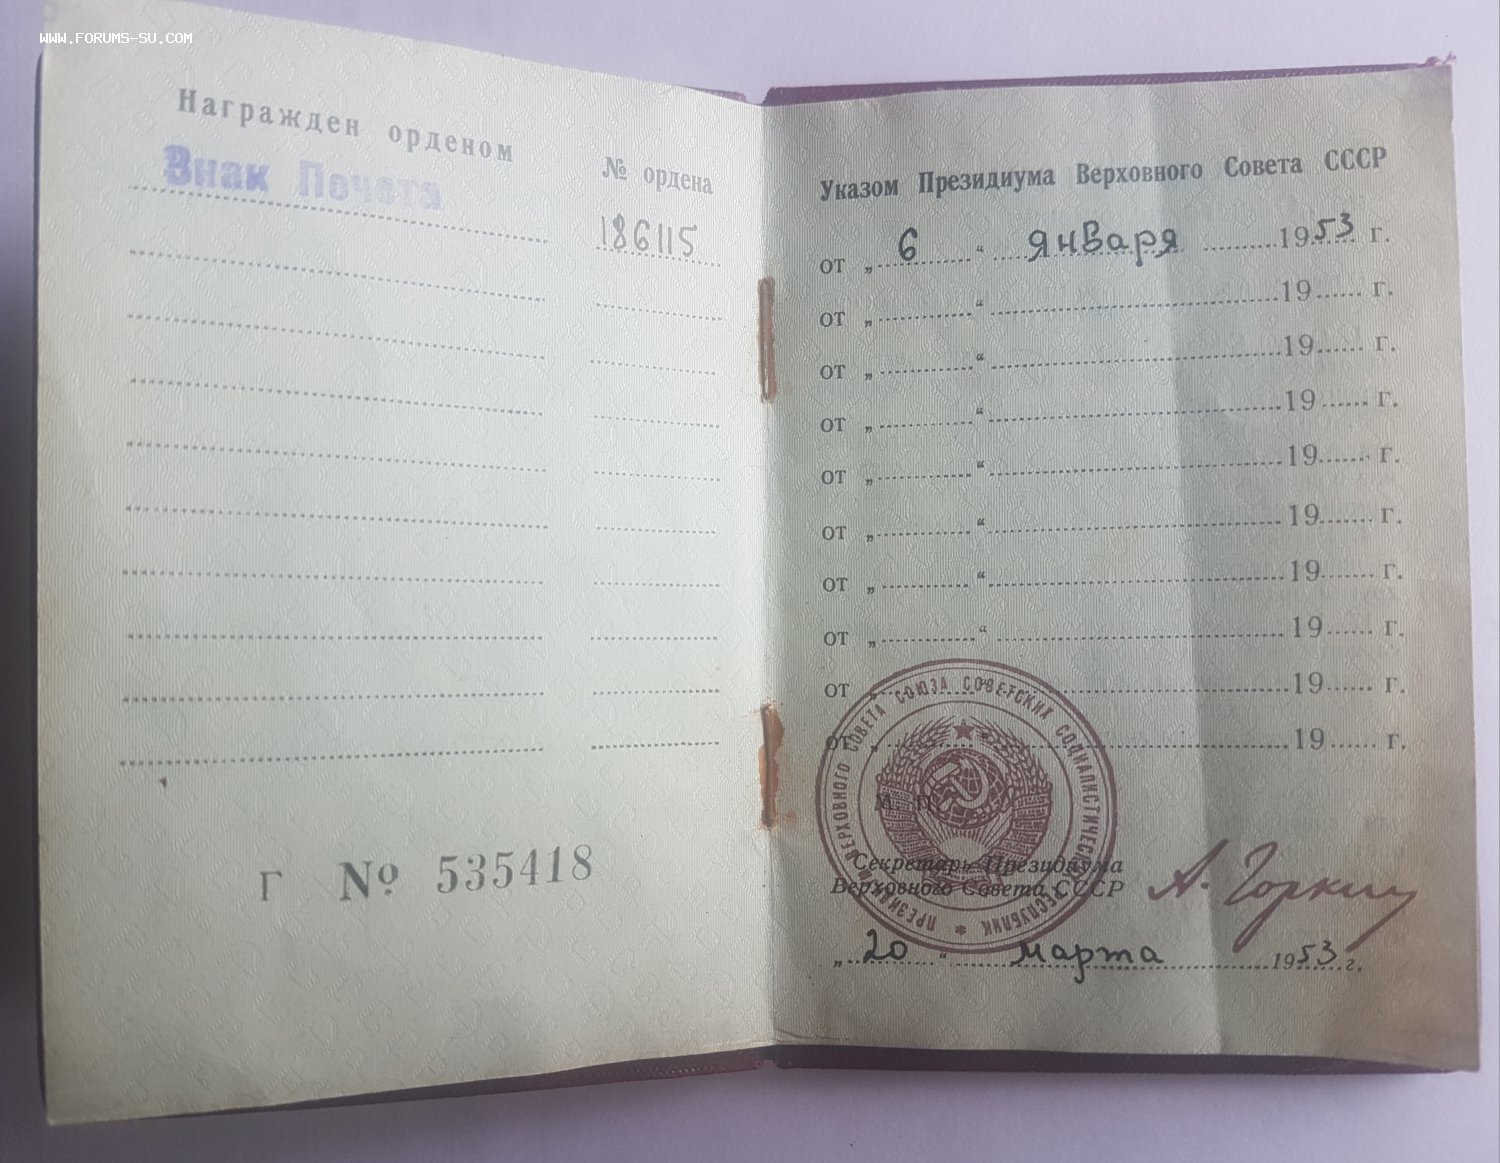 WWW.FORUMS-SU.COM
Награжден орденом
Знак Почета
№ ордена
186115
Г № 535418
Указом Президиума Верховного Совета СССР
от „ 6 “ января 1953 г.
от „ “ 19 г.
от „ “ 19 г.
от „ “ 19 г.
от „ “ 19 г.
от „ “ 19 г.
от „ “ 19 г.
от „ “ 19 г.
от „ “ 19 г.
от „ “ 19 г.
М. П.
ПРЕЗИДИУМ ВЕРХОВНОГО СОВЕТА СОЮЗА СОВЕТСКИХ СОЦИАЛИСТИЧЕСКИХ РЕСПУБЛИК
Секретарь Президиума
Верховного Совета СССР
А. Горкин
„ 20 “ марта 1953 г.